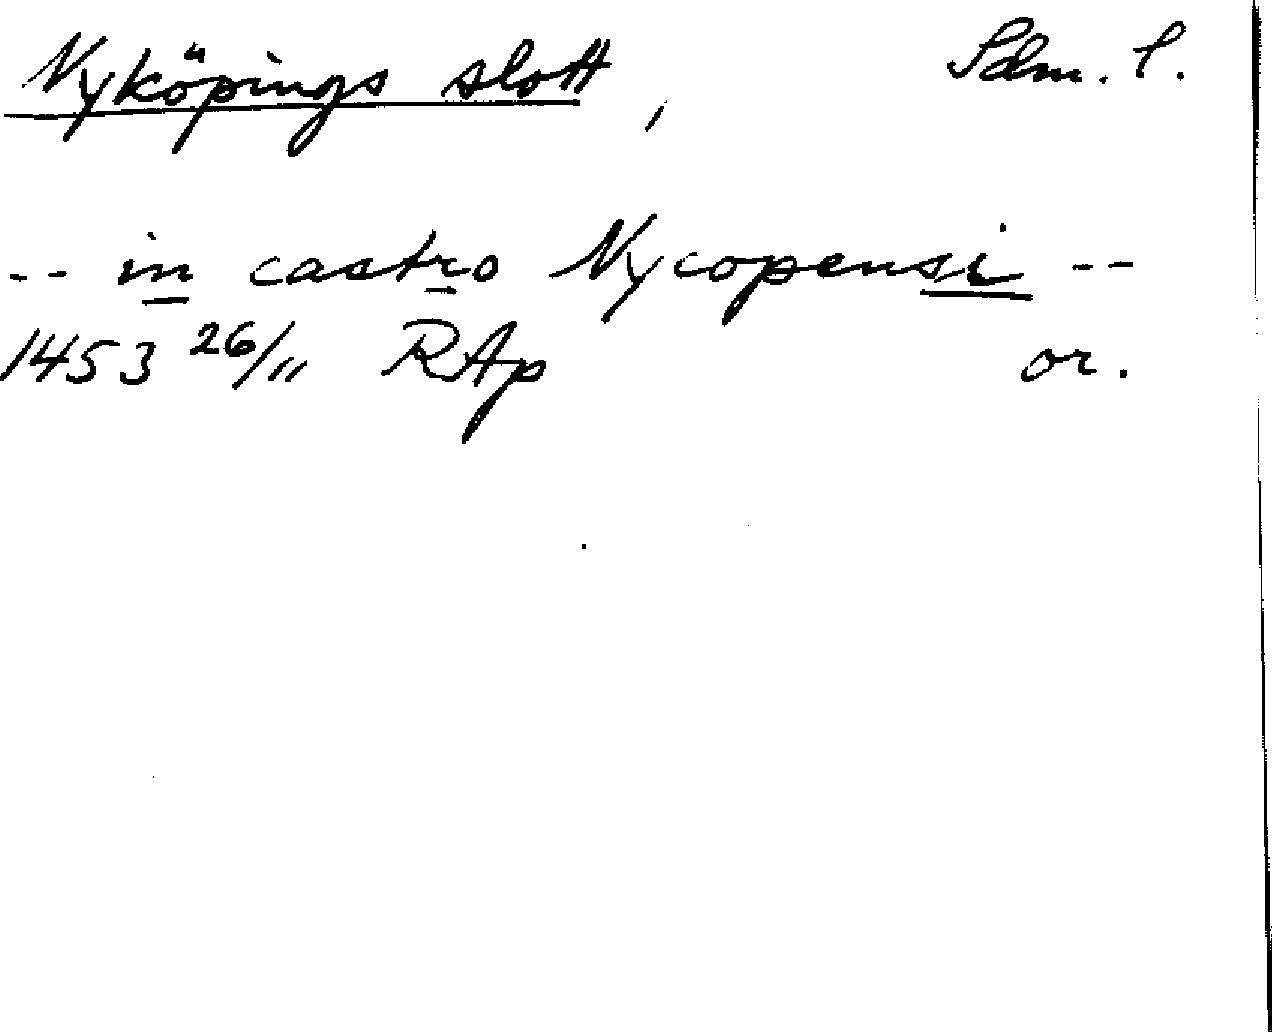 Nyköpings slott, Sdm. l.
-- in castro Nycopensi --
1453 26/11 RAp or.